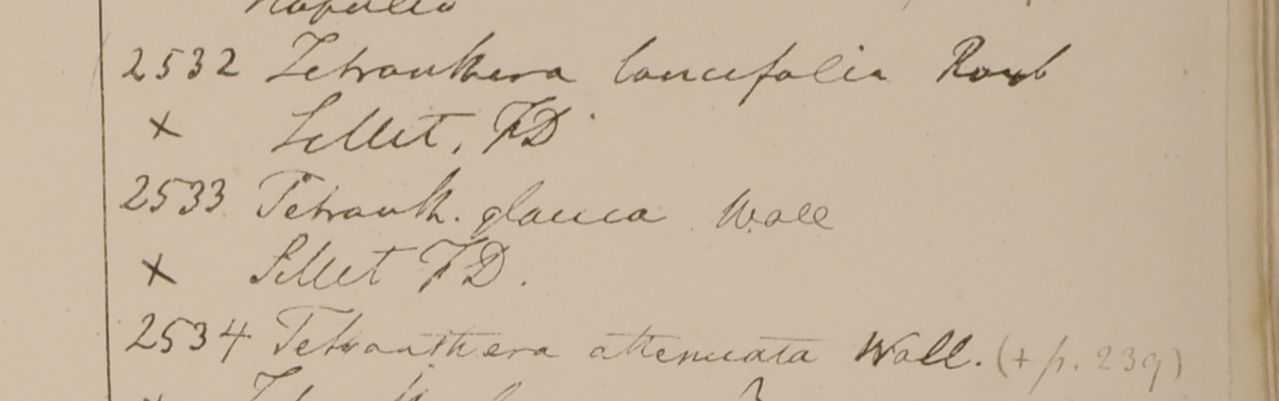 Napalia
2532 Tetranthera lancifolia Roxb
x Sillet, FD.
2533 Tetranth. glauca Wall
x Sillet FD.
2534 Tetranthera attenuata Wall. (+ p. 239)
x